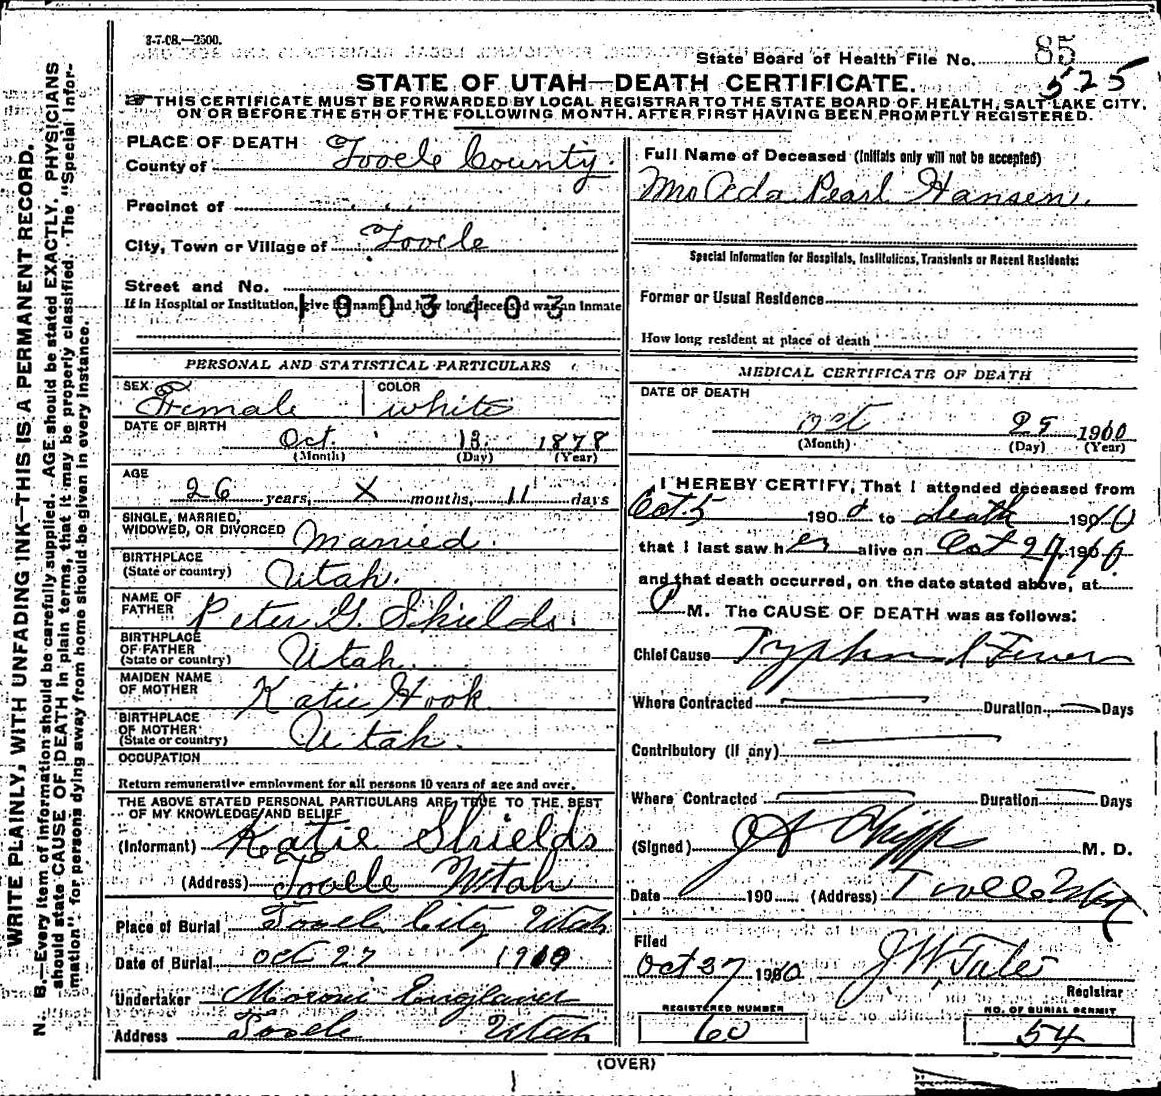 3-7-08.—2500.
State Board of Health File No. 85
525
STATE OF UTAH—DEATH CERTIFICATE.
THIS CERTIFICATE MUST BE FORWARDED BY LOCAL REGISTRAR TO THE STATE BOARD OF HEALTH, SALT LAKE CITY,
ON OR BEFORE THE 5TH OF THE FOLLOWING MONTH, AFTER FIRST HAVING BEEN PROMPTLY REGISTERED.
WRITE PLAINLY, WITH UNFADING INK—THIS IS A PERMANENT RECORD.
N. B.—Every item of information should be carefully supplied. AGE should be stated EXACTLY. PHYSICIANS
should state CAUSE OF DEATH in plain terms, that it may be properly classified. The "Special Infor-
mation" for persons dying away from home should be given in every instance.
PLACE OF DEATH
County of Tooele County.
Precinct of
City, Town or Village of Tooele
Street and No.
If in Hospital or Institution, give its name and how long deceased was an inmate
1003403
PERSONAL AND STATISTICAL PARTICULARS
SEX Female COLOR white
DATE OF BIRTH Oct. 13. 1878
(Month) (Day) (Year)
AGE 26 years, X months, 11 days
SINGLE, MARRIED,
WIDOWED, OR DIVORCED Married.
BIRTHPLACE
(State or country) Utah.
NAME OF
FATHER Peter G. Shields.
BIRTHPLACE
OF FATHER
(State or country) Utah.
MAIDEN NAME
OF MOTHER Katie Hook
BIRTHPLACE
OF MOTHER
(State or country) Utah.
OCCUPATION
Return remunerative employment for all persons 10 years of age and over.
THE ABOVE STATED PERSONAL PARTICULARS ARE TRUE TO THE BEST
OF MY KNOWLEDGE AND BELIEF
(Informant) Katie Shields
(Address) Tooele Utah
Place of Burial Tooele City Utah
Date of Burial Oct 27 1910
Undertaker Moroni England
Address Tooele Utah
Full Name of Deceased (Initials only will not be accepted)
Mrs Ada Pearl Hansen.
Special Information for Hospitals, Institutions, Transients or Recent Residents:
Former or Usual Residence
How long resident at place of death
MEDICAL CERTIFICATE OF DEATH
DATE OF DEATH
Oct 25 1910
(Month) (Day) (Year)
I HEREBY CERTIFY, That I attended deceased from
Oct. 5 190 to death 1910
that I last saw her alive on Oct 24, 1910
and that death occurred, on the date stated above, at
P M. The CAUSE OF DEATH was as follows:
Chief Cause Typhoid Fever
Where Contracted Duration Days
Contributory (if any)
Where Contracted Duration Days
(Signed) J A Phipps M. D.
Date 190 (Address) Tooele Utah
Filed
Oct 27 1910 J. W. Tate
Registrar
REGISTERED NUMBER
60
NO. OF BURIAL PERMIT
54
(OVER)